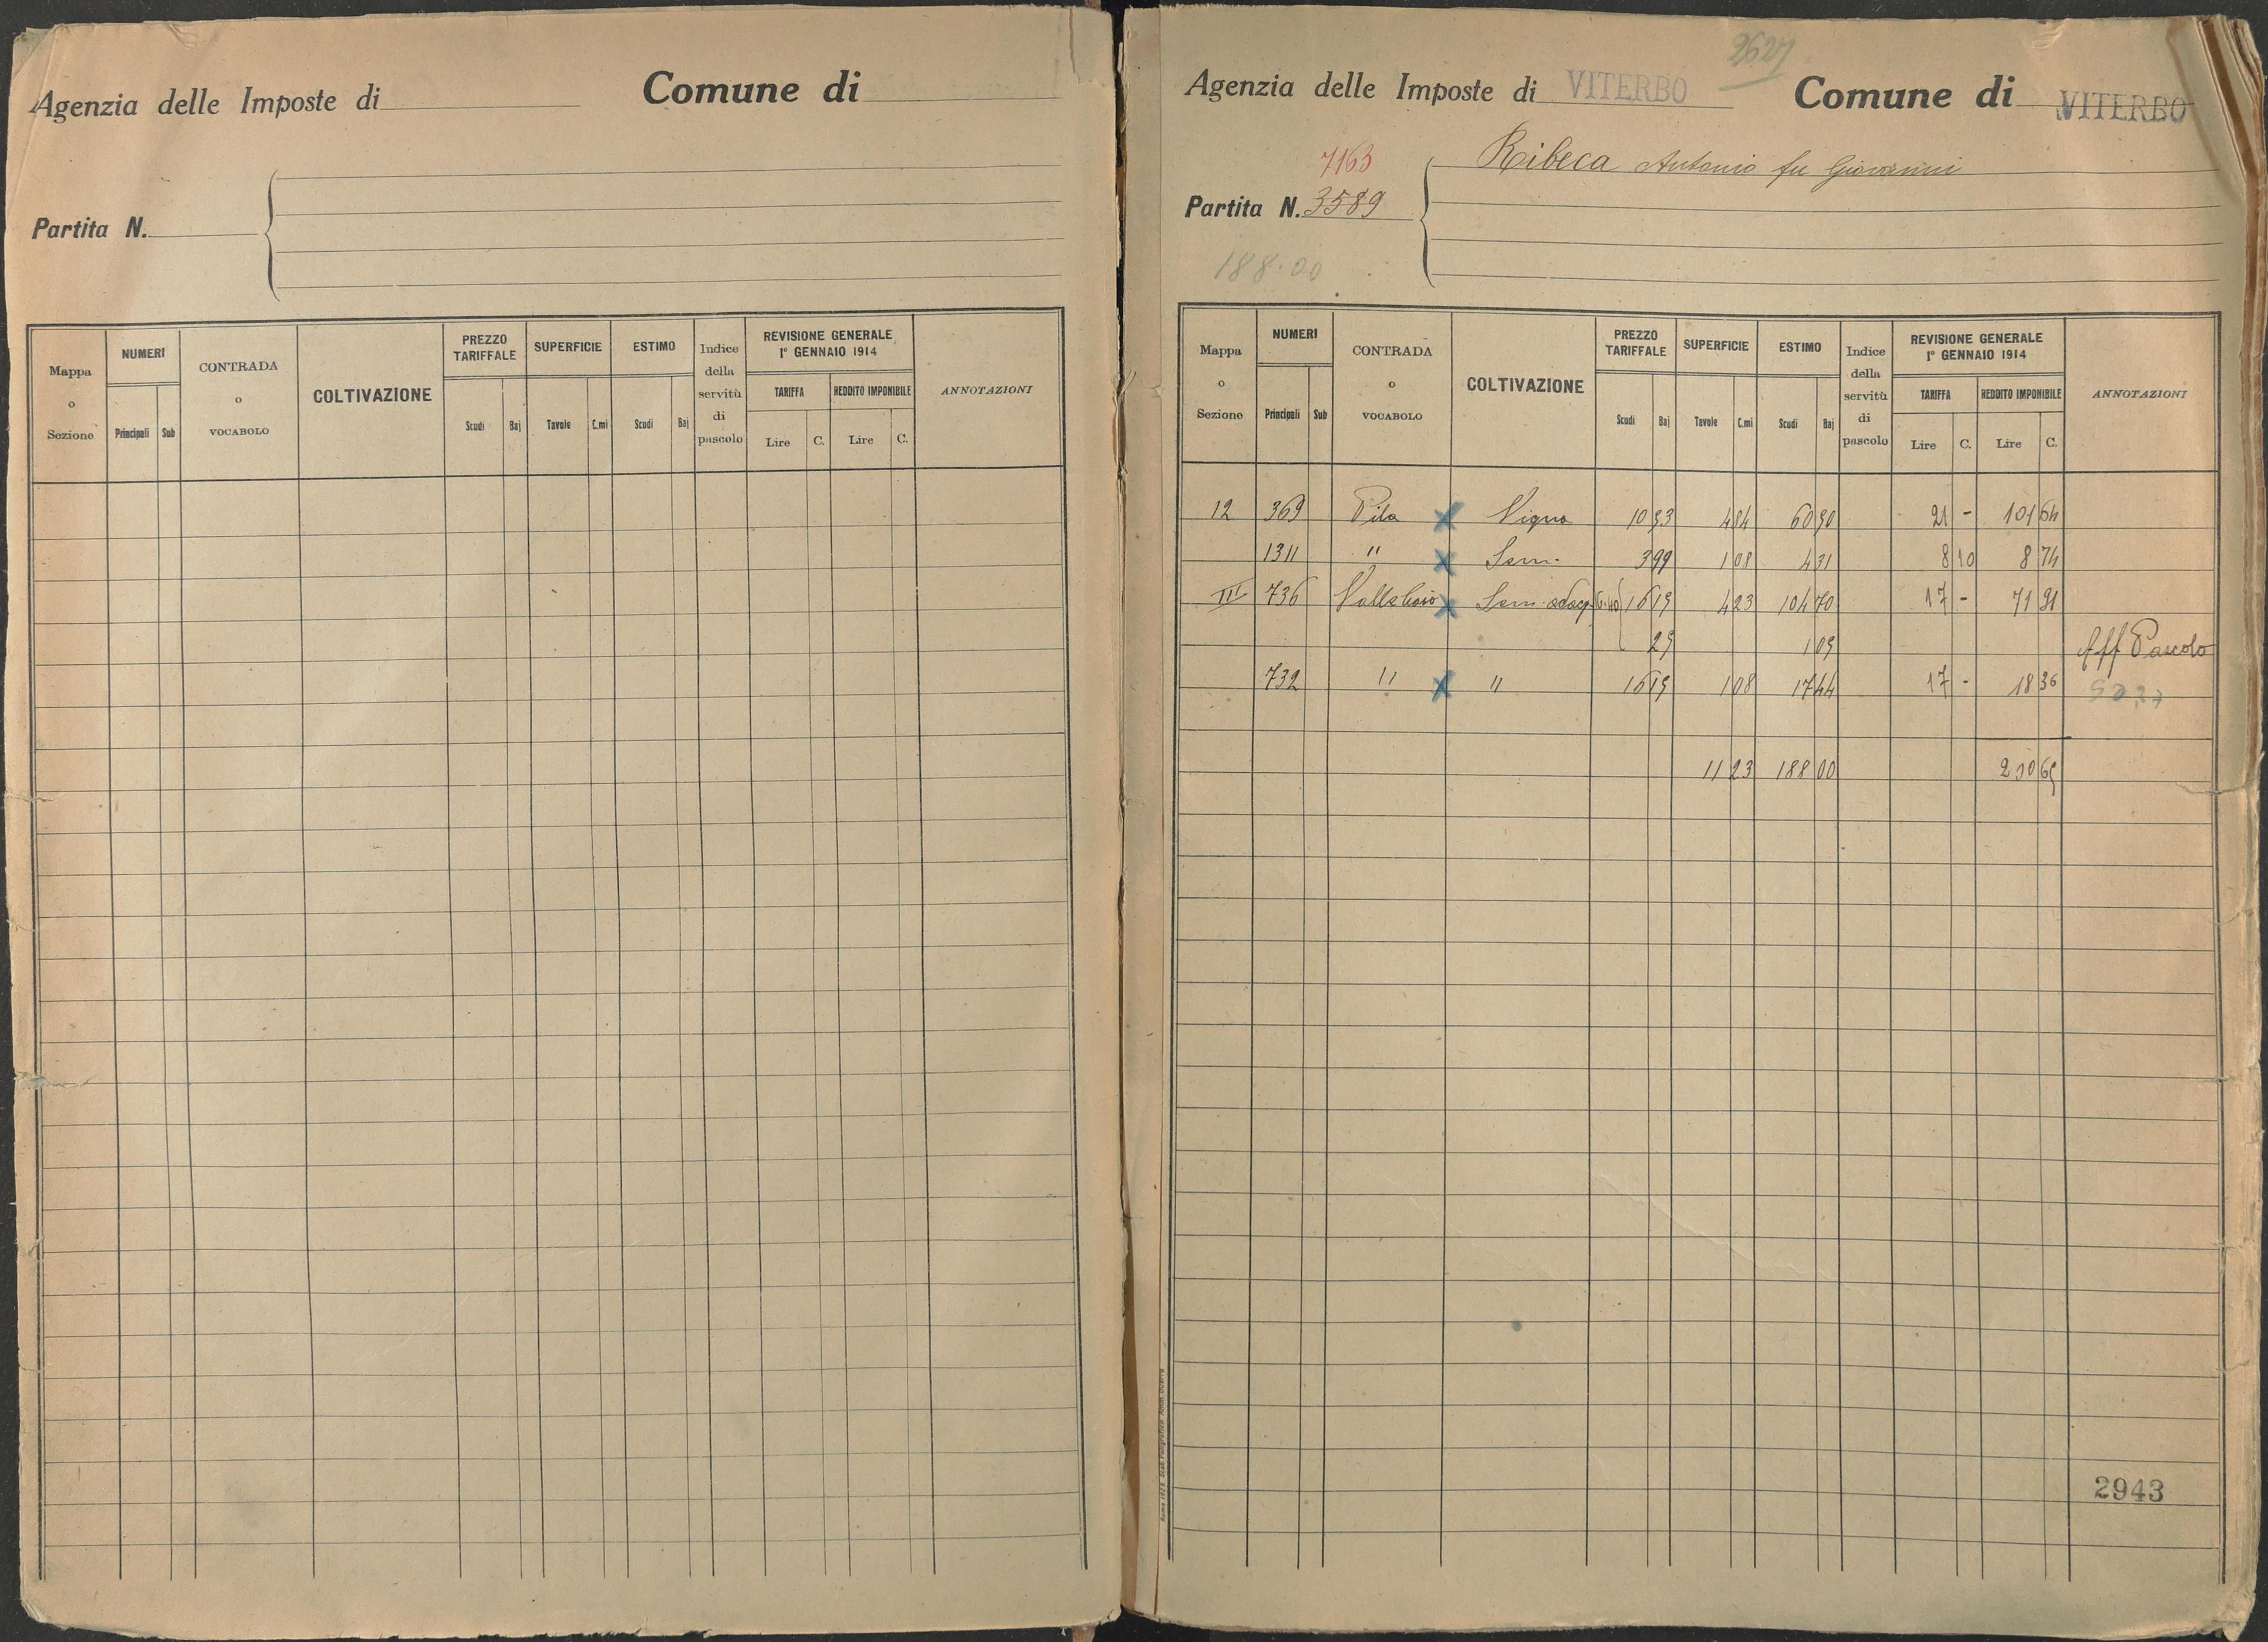 Agenzia delle Imposte di Comune di
Partita N.
Mappa o Sezione NUMERI Principali Sub CONTRADA o VOCABOLO COLTIVAZIONE PREZZO TARIFFALE Scudi Baj SUPERFICIE Tavole C.mi ESTIMO Scudi Baj Indice della servitù di pascolo REVISIONE GENERALE 1° GENNAIO 1914 TARIFFA Lire C. REDDITO IMPONIBILE Lire C. ANNOTAZIONI
2627
Agenzia delle Imposte di VITERBO Comune di VITERBO
7163
Ribeca Antonio fu Giovanni
Partita N. 3589
188.00
Mappa o Sezione NUMERI Principali Sub CONTRADA o VOCABOLO COLTIVAZIONE PREZZO TARIFFALE Scudi Baj SUPERFICIE Tavole C.mi ESTIMO Scudi Baj Indice della servitù di pascolo REVISIONE GENERALE 1° GENNAIO 1914 TARIFFA Lire C. REDDITO IMPONIBILE Lire C. ANNOTAZIONI
12 369 Pila X Vigna 4 84 21 - 101 64
1311 " X Sem. 3 99 1 08 4 31 8 10 8 74
III 736 X Sem. adacq. 16 15 4 23 104 70 17 - 71 91
Aff Pascolo
732 " X " 16 15 1 08 17 44 17 - 18 36
11 23 188 00 200 65
2943